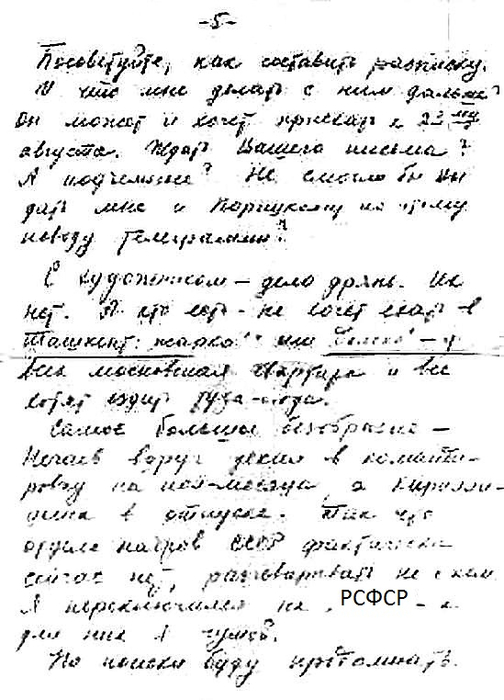 -5-
Посоветуйте, как составить расписку.
И что мне делать с ним дальше?
Он может и хочет приехать к 23му
августа. Ждать Вашего письма?
А подъемные? Не смогли бы Вы
дать мне и по этому
поводу телеграмму?
С художником – дело дрянь. Их
нет. А кто есть – не хочет ехать в
Ташкент: жарко! или далеко! – у
всех московская квартира и все
хотят ездить туда-сюда.
Самое большое безобразие –
Нечаев вдруг уехал в команди-
ровку на пол-месяца, а
в отпуске. Так что
отдела кадров СССР фактически
сейчас нет, разговаривать не с кем.
Я переключился на РСФСР – а
для них я чужой.
Но поиски буду продолжать.